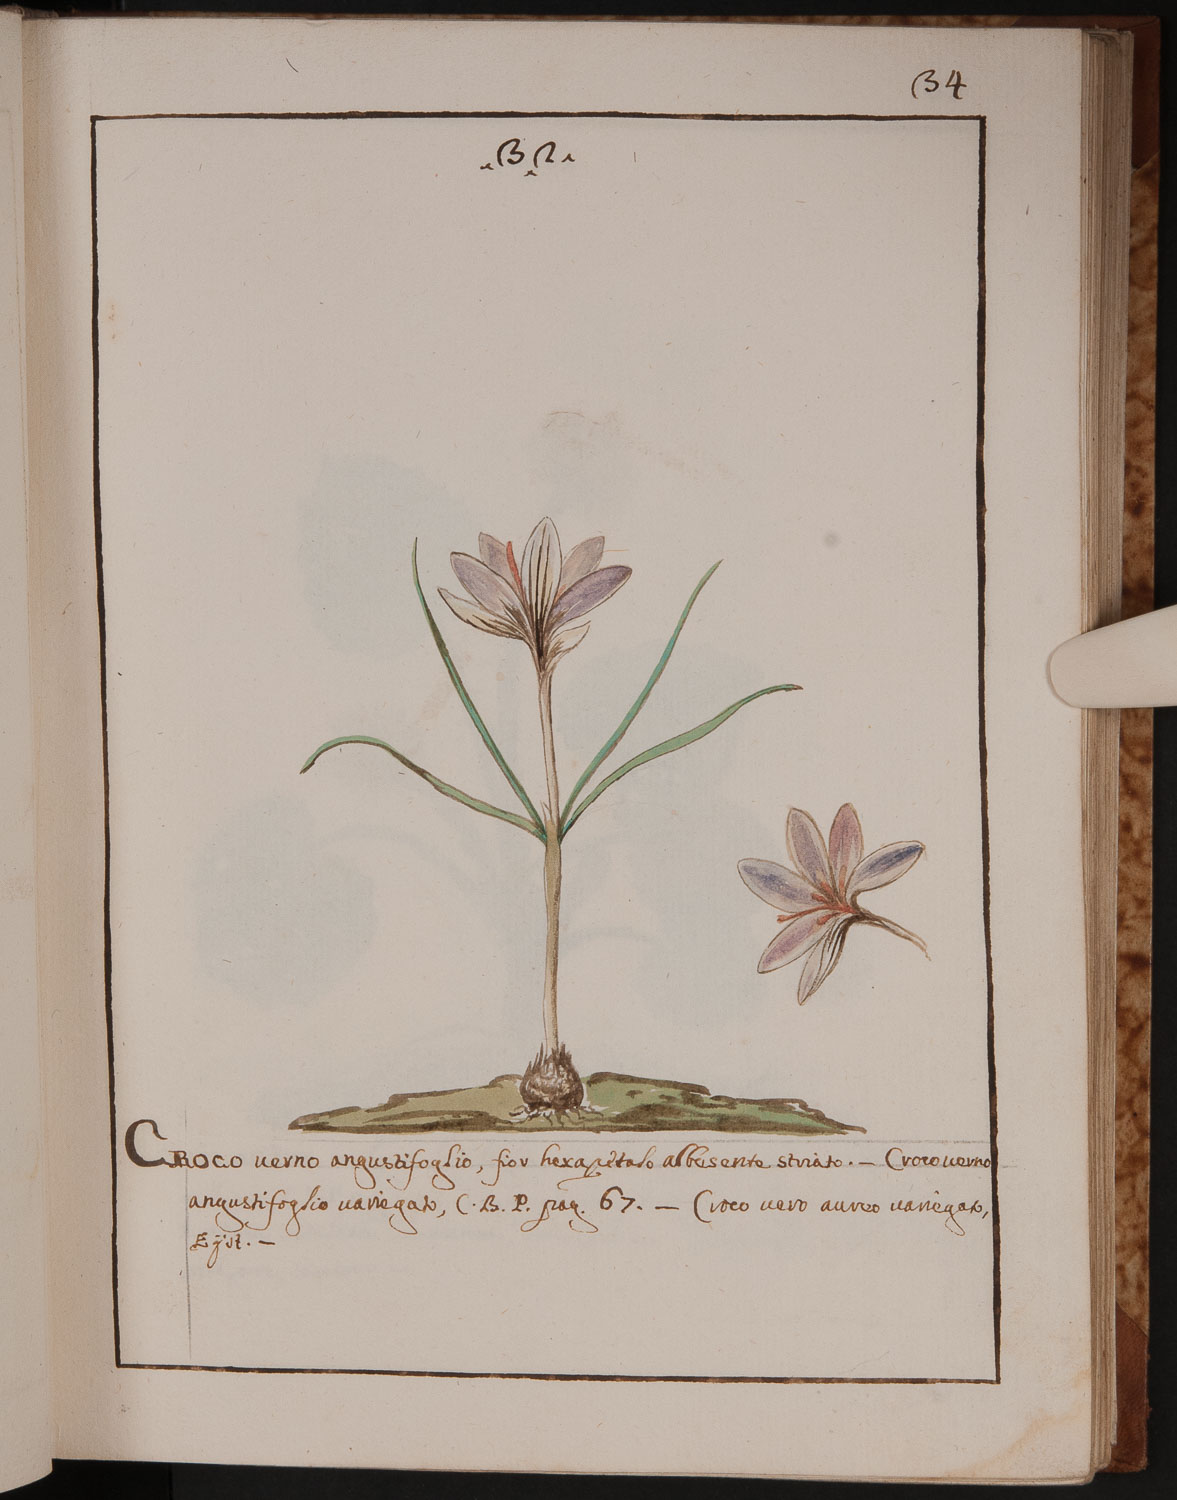 34
.32.
Croco verno angustifoglio, fior hexapetalo albesente striato. — Croco verno
angustifoglio variegato, C. B. P. pag. 67. — Croco vero aureo variegato,
Eyst. —